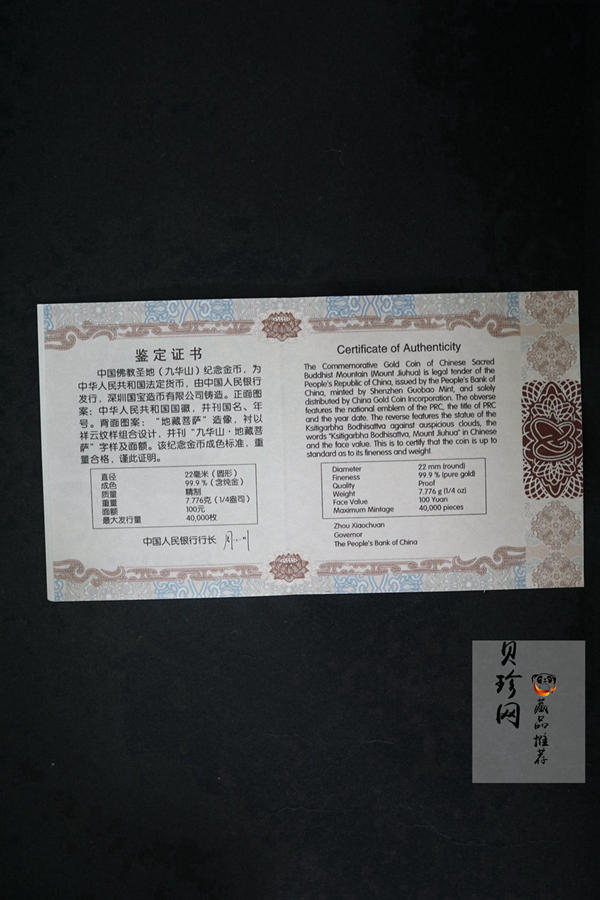 鉴定证书
中国佛教圣地（九华山）纪念金币，为
中华人民共和国法定货币，由中国人民银行
发行，深圳国宝造币有限公司铸造。正面图
案：中华人民共和国国徽，并刊国名、年
号。背面图案：“地藏菩萨”造像，衬以
祥云纹样组合设计，并刊“九华山·地藏菩
萨”字样及面额。该纪念金币成色标准，重
量合格，谨此证明。
直径 22毫米（圆形）
成色 99.9％（含纯金）
质量 精制
重量 7.776克（1/4盎司）
面额 100元
最大发行量 40,000枚
中国人民银行行长
Certificate of Authenticity
The Commemorative Gold Coin of Chinese Sacred
Buddhist Mountain (Mount Jiuhua) is legal tender of the
People's Republic of China, issued by the People's Bank of
China, minted by Shenzhen Guobao Mint, and solely
distributed by China Gold Coin Incorporation. The obverse
features the national emblem of the PRC, the title of PRC
and the year date. The reverse features the statue of the
Ksitigarbha Bodhisattva against auspicious clouds, the
words "Ksitigarbha Bodhisattva, Mount Jiuhua" in Chinese
and the face value. This is to certify that the coin is up to
standard as to its fineness and weight.
Diameter 22 mm (round)
Fineness 99.9 % (pure gold)
Quality Proof
Weight 7.776 g (1/4 oz)
Face Value 100 Yuan
Maximum Mintage 40,000 pieces
Zhou Xiaochuan
Governor
The People's Bank of China
贝珍网
藏品推荐